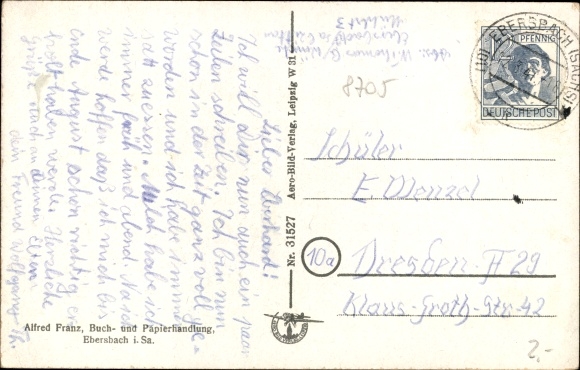 Lieber Eberhard!
Ich will Dir nun auch ein paar
Zeilen schreiben. Ich bin nun
schon in der Zeit ganz voll ge-
worden und ich habe immer
satt zu essen. Milch habe ich
immer früh und abend. Na ich
werde hoffen daß ich mich bis
Ende August schon richtig er-
holt haben werde. Herzliche
Grüße auch an deinen Eltern
dein Freund Wolfgang
Alfred Franz, Buch- und Papierhandlung,
Ebersbach i. Sa.
Nr. 31527 Aero-Bild-Verlag, Leipzig W 31
8705
(10) EBERSBACH (SACHS)
PFENNIG
DEUTSCHE POST
Schüler
E. Wenzel
10a
Dresden A 29
Klaus-Groth-Str 42
2,-